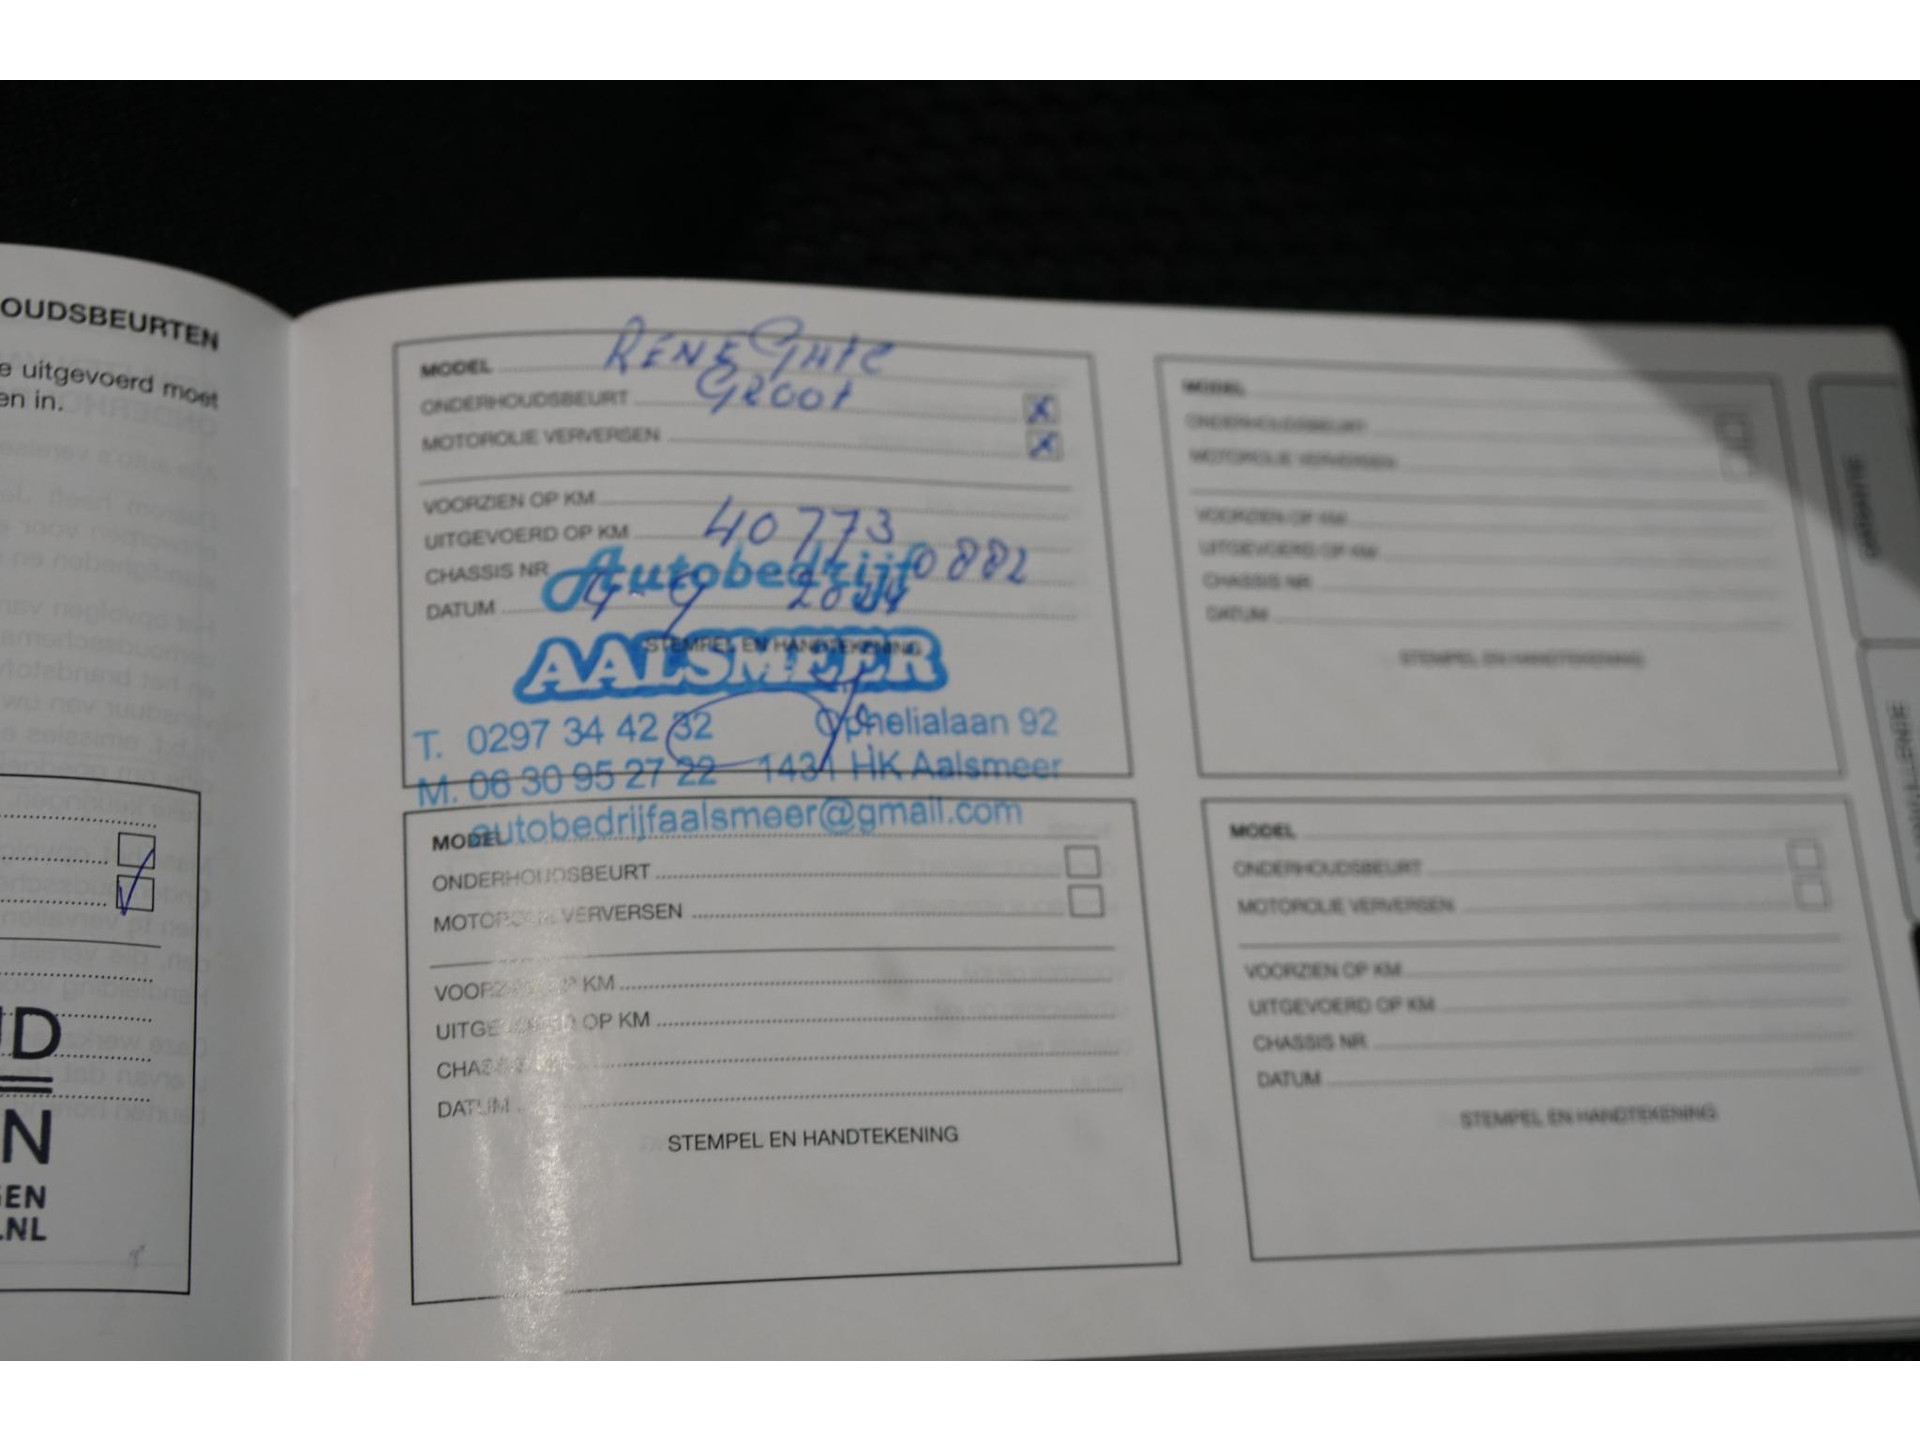 OUDSBEURTEN
e uitgevoerd moet
en in.
ID
N
GEN
.NL
MODEL RENEGATE
ONDERHOUDSBEURT GROOT X
MOTOROLIE VERVERSEN X
VOORZIEN OP KM
UITGEVOERD OP KM 40773
CHASSIS NR 0882
DATUM
STEMPEL EN HANDTEKENING
Autobedrijf
AALSMEER
T. 0297 34 42 32 Ophelialaan 92
M. 06 30 95 27 22 1431 HK Aalsmeer
autobedrijfaalsmeer@gmail.com
MODEL
ONDERHOUDSBEURT
MOTOROLIE VERVERSEN
VOORZIEN OP KM
UITGEVOERD OP KM
CHASSIS NR
DATUM
STEMPEL EN HANDTEKENING
MODEL
ONDERHOUDSBEURT
MOTOROLIE VERVERSEN
VOORZIEN OP KM
UITGEVOERD OP KM
CHASSIS NR
DATUM
STEMPEL EN HANDTEKENING
MODEL
ONDERHOUDSBEURT
MOTOROLIE VERVERSEN
VOORZIEN OP KM
UITGEVOERD OP KM
CHASSIS NR
DATUM
STEMPEL EN HANDTEKENING